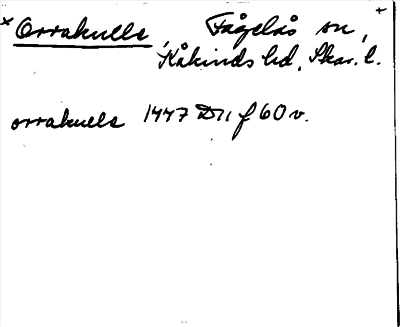 × Orrakulle, Fågelås sn, +
Kåkinds hd, Skar. l.
orrakulle 1447 D11 f 60 v.